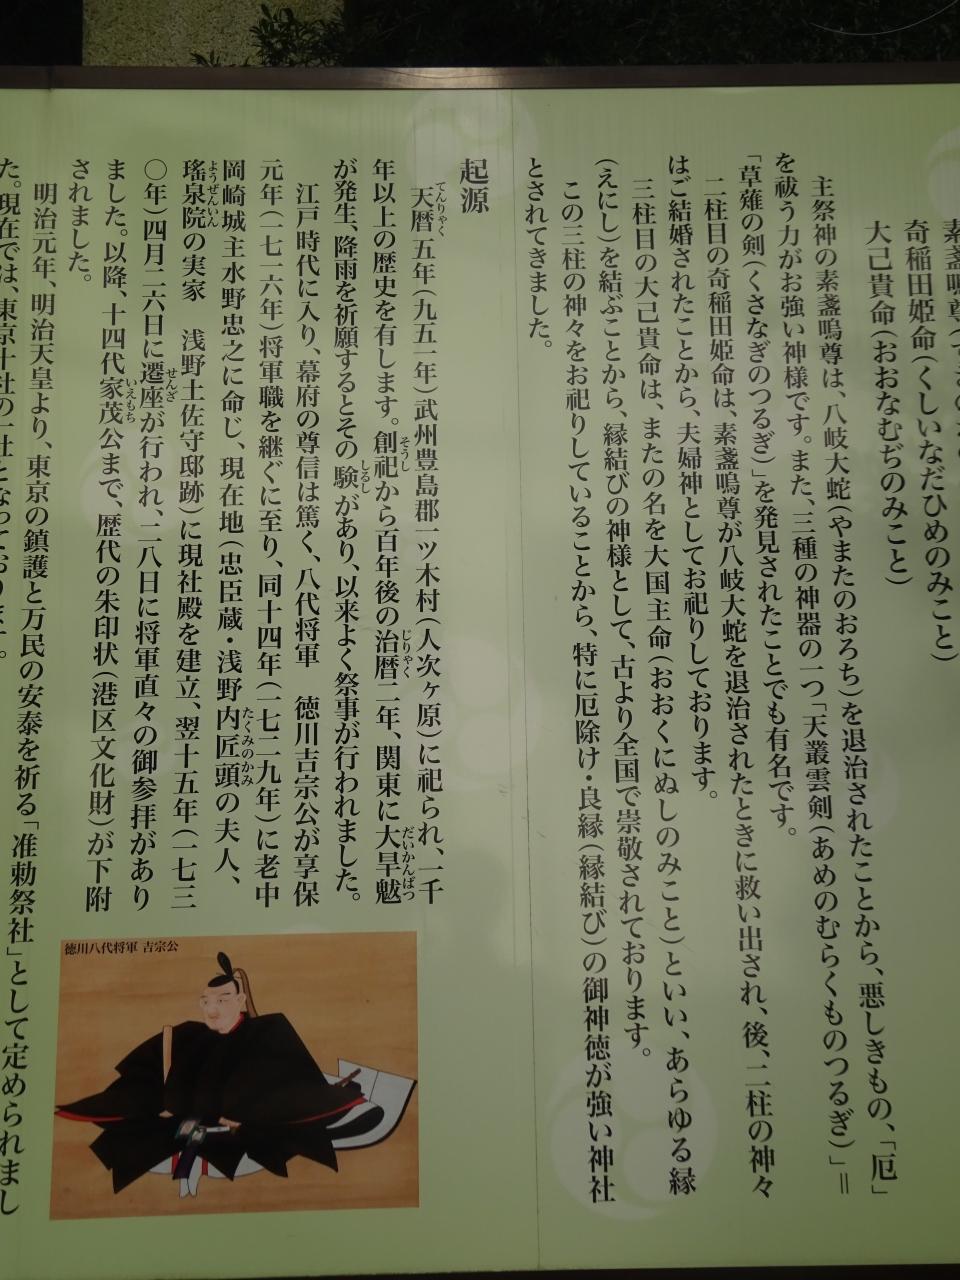 素盞嗚尊
奇稲田姫命(くしいなだひめのみこと)
大己貴命(おおなむぢのみこと)
主祭神の素盞嗚尊は、八岐大蛇(やまたのおろち)を退治されたことから、悪しきもの、「厄」
を祓う力がお強い神様です。また、三種の神器の一つ「天叢雲剣(あめのむらくものつるぎ)」＝
「草薙の剣(くさなぎのつるぎ)」を発見されたことでも有名です。
二柱目の奇稲田姫命は、素盞嗚尊が八岐大蛇を退治されたときに救い出され、後、二柱の神々
はご結婚されたことから、夫婦神としてお祀りしております。
三柱目の大己貴命は、またの名を大国主命(おおくにぬしのみこと)といい、あらゆる縁
(えにし)を結ぶことから、縁結びの神様として、古より全国で崇敬されております。
この三柱の神々をお祀りしていることから、特に厄除け・良縁(縁結び)の御神徳が強い神社
とされてきました。
起源
天暦五年(九五一年)武州豊島郡一ツ木村(人次ヶ原)に祀られ、一千
てんりゃく
年以上の歴史を有します。創祀から百年後の治暦二年、関東に大旱魃
そうし じりゃく だいかんばつ
が発生、降雨を祈願するとその験があり、以来よく祭事が行われました。
しるし
江戸時代に入り、幕府の尊信は篤く、八代将軍 徳川吉宗公が享保
元年(一七一六年)将軍職を継ぐに至り、同十四年(一七二九年)に老中
岡崎城主水野忠之に命じ、現在地(忠臣蔵・浅野内匠頭の夫人、
たくみのかみ
瑤泉院の実家 浅野土佐守邸跡)に現社殿を建立、翌十五年(一七三
ようぜんいん
〇年)四月二六日に遷座が行われ、二八日に将軍直々の御参拝があり
せんざ
ました。以降、十四代家茂公まで、歴代の朱印状(港区文化財)が下附
いえもち
されました。
明治元年、明治天皇より、東京の鎮護と万民の安泰を祈る「准勅祭社」として定められまし
た。現在では、東京十社の一社となっております。
徳川八代将軍 吉宗公